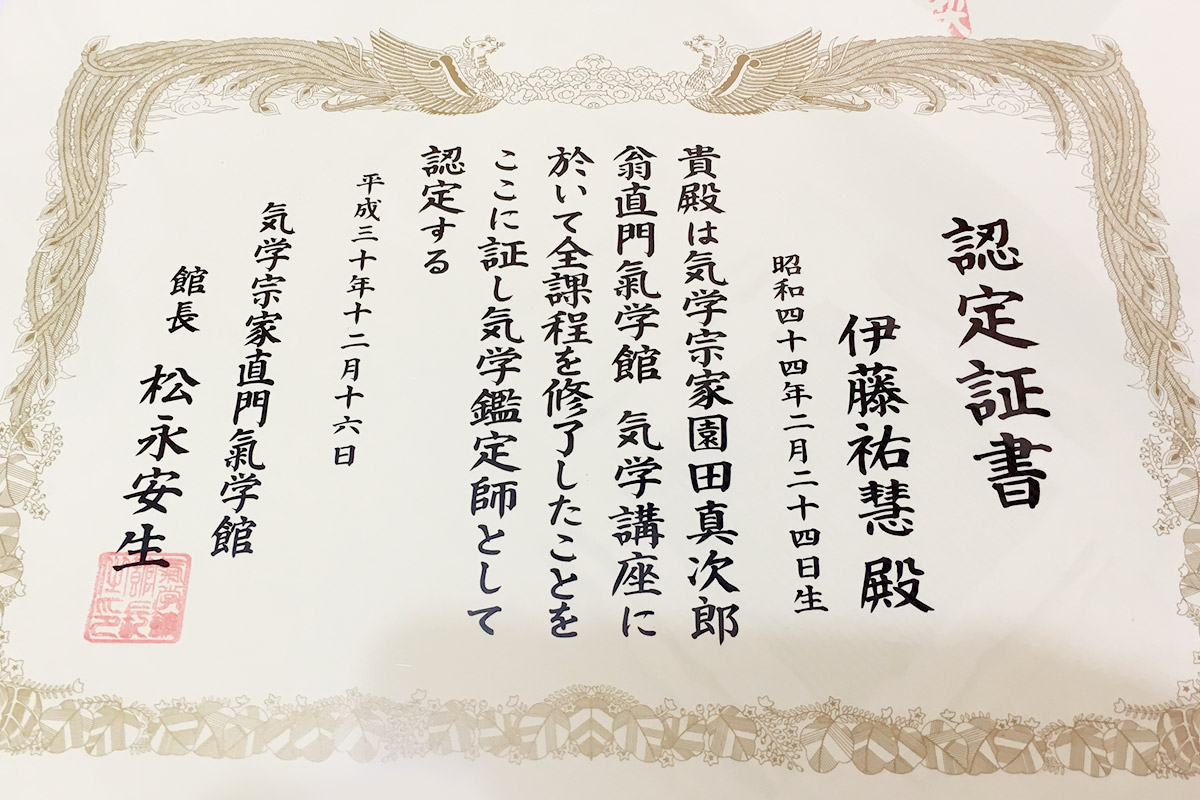 認定証書
伊藤祐慧 殿
昭和四十四年二月二十四日生
貴殿は気学宗家園田真次郎
翁直門氣学館 気学講座に
於いて全課程を修了したことを
ここに証し気学鑑定師として
認定する
平成三十年十二月十六日
気学宗家直門氣学館
館長 松永安生